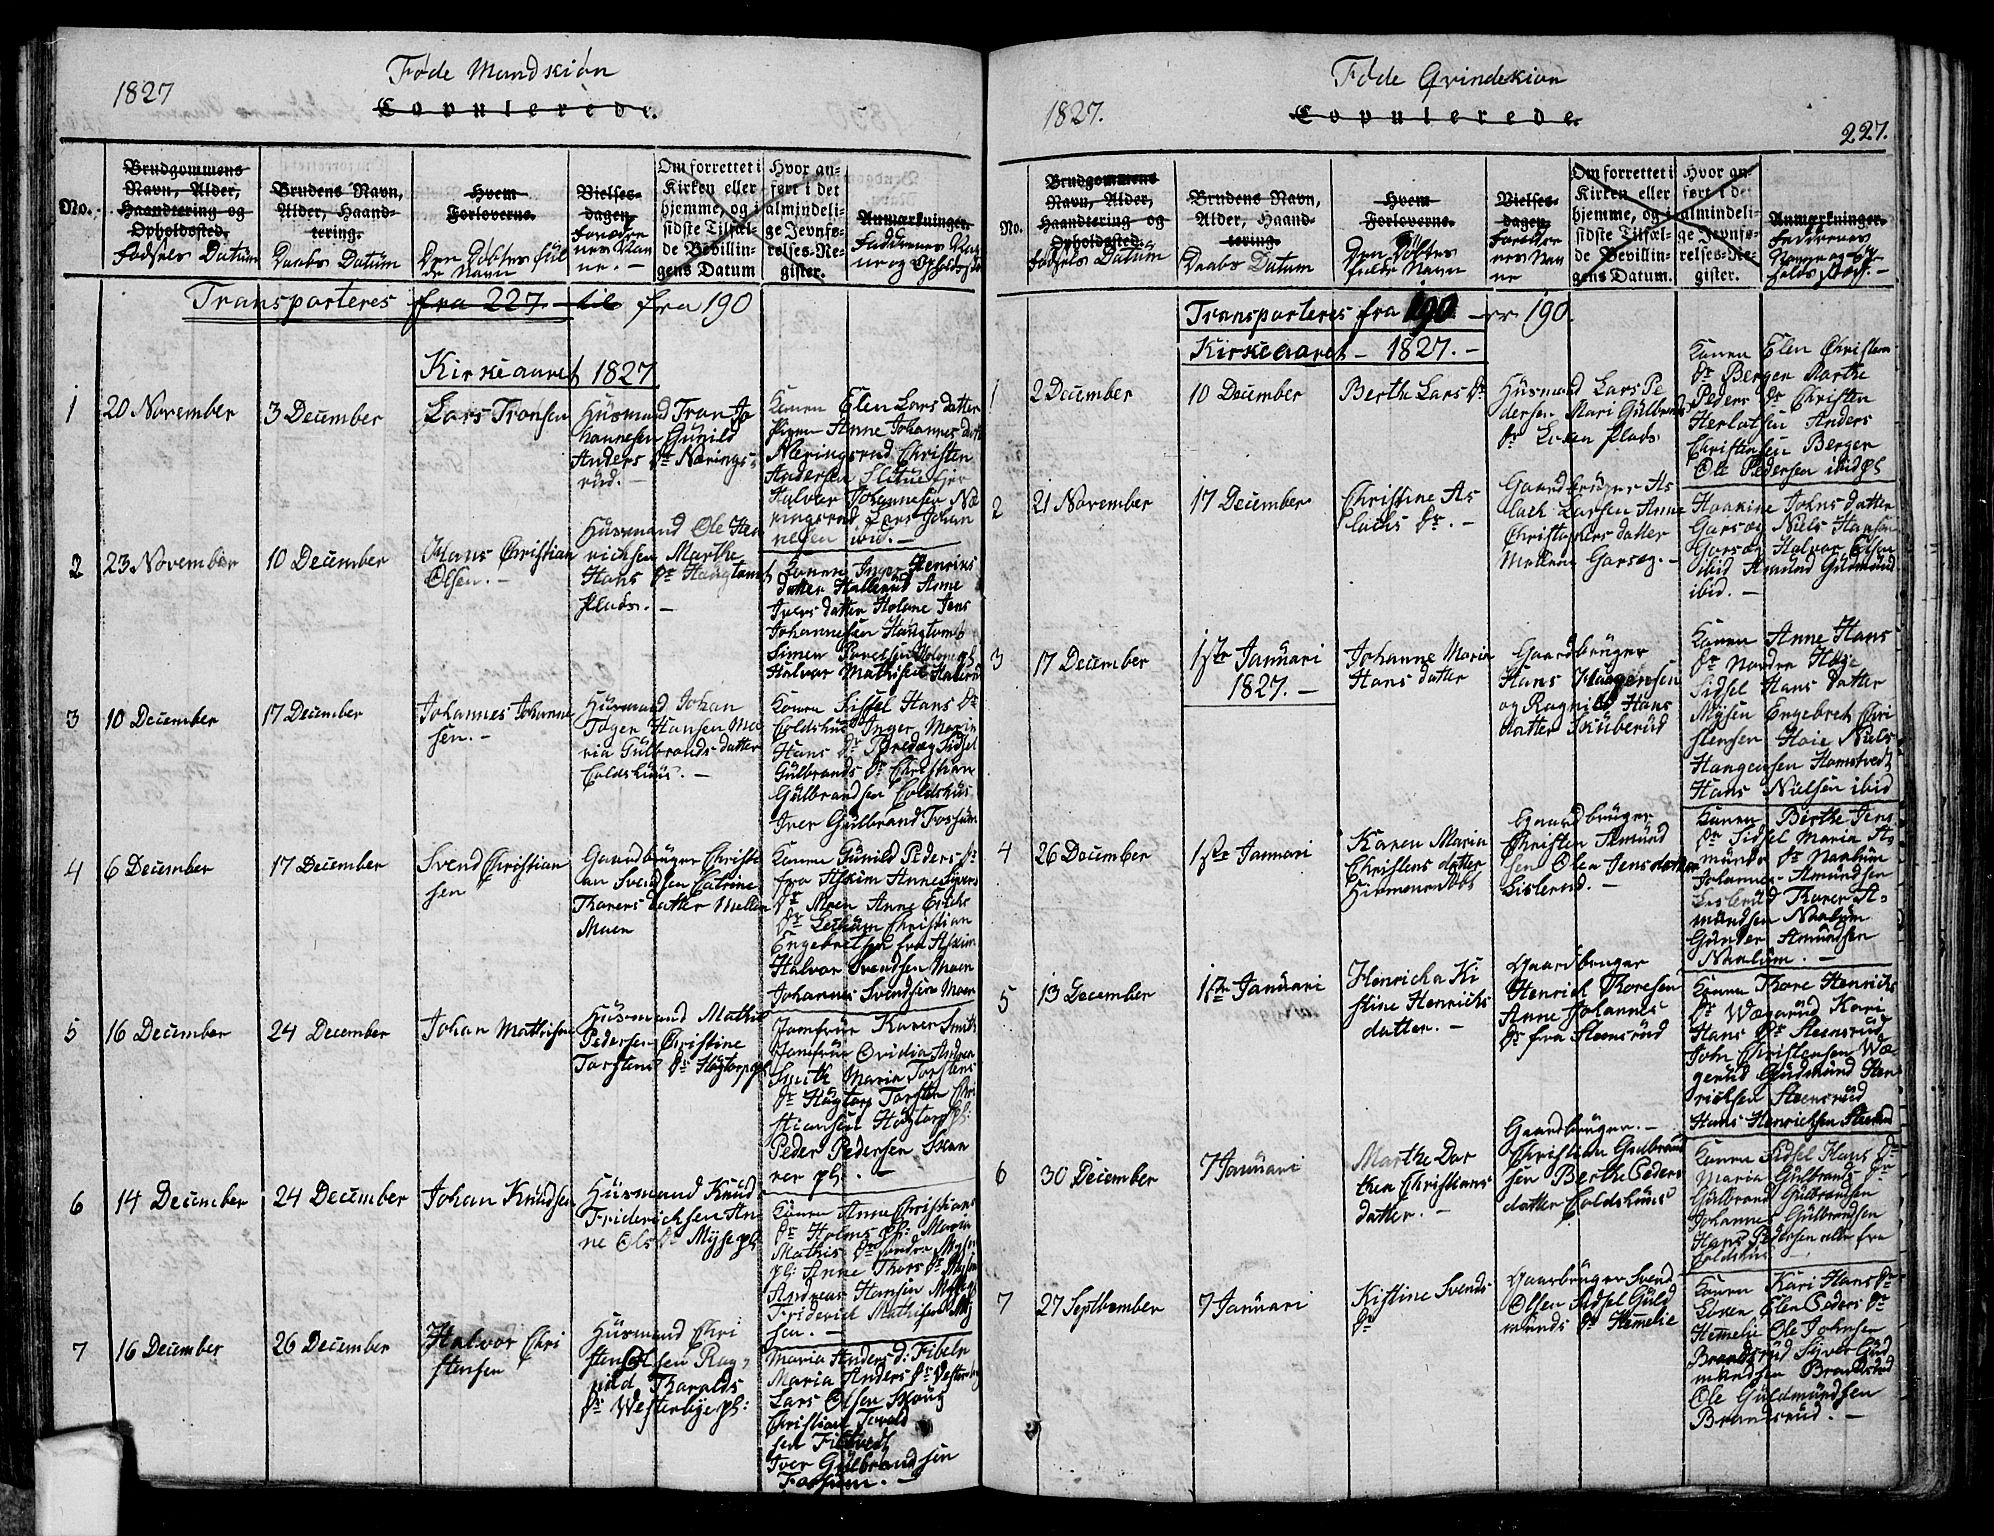 1827
Føde Mandskiøn
Copulerede.
No.
Brudgommens
Navn, Alder,
Haandtering og
Opholdssted.
Fødsels Datum
Brudens Navn,
Alder, Haand-
tering.
Daabs Datum
Hvem
Forloverne.
Den Døbtes fül
de Navn
Vielses-
dagen.
Forældre
nes Nav
ne. -
Om forrettet i
Kirken eller
hjemme, og i
sidste Tilfæl-
de Bevillin-
gens Datum
Hvor an-
ført i det
almindeli-
ge Jevnfø-
relses-Re-
gister.
Anmærkninger.
Faddernes Nav
ne og Opholdsste
Transporteres fra 227 til fra 190
Kirkeaaret 1827
1
20 November
3 December
Lars Tronsen
Hüsmand Tron Jo
hannesen Günild
Anders Dr Nærings
rüd. -
Konen Elen Lars datter
Pigen Anne Johannes datt
Næringsrud Christen
Andersen Slituefjer
Halvor Johannesen Næ
ringsrud Lars Johan
nesen ibid. -
2
23 November
10 December
Hans Christian
Olsen. -
Hüsmand Ole Hen
richsen Marthe
Hans Dr Haugtomt
Plads. -
Konen Inger Henriks
datter Hallerud Anne
Ivers datter Holene Jens
Johannesen Haugtomt
Simen Povelsen Holene pl
Halvor Mathisen Hallerud
3
10 December
17 December
Johannes Johanne
sen. -
Hüsmand Johan
Tøger Hansen Ma
ria Gülbrands datter
Coldshuus. -
Konen Sissel Hans Dr
Coldshus Inger Maria
Hans Dr Bredæg Sidsel
Gülbrands Dr Christian
Gülbrandsen Coldshus
Iver Gülbrand Forsüm
4
6 December
17 December
Svend Christian
sen
Gaardbrüger Christi
an Svendsen Catrine
Thorers datter Mellem
Moen
Konen Günild Peders Dr
fra Askim Anne Sivers
Dr Moen Anne Erichs
Dr Leküm Christian
Engebretsen fra Askim
Halvor Svendsen Moen
Johannes Svendsen Moen
5
16 December
24 December
Johan Mathisen
Hüsmand Mathis
Pedersen Christine
Torstens Dr Hügtorp pl
Jomfrür Karen Smith
Jomfrür Ovidia Andrea
Smith Maria Torstens
Dr Hügtorp Torsten Chri
stiansen Hügtorp pl:
Peder Pedersen Skan
ner pl: -
6
14 December
24 December
Johan Knüdsen
Hüsmand Knüd
Friderichsen An
ne Ols Dr Myse pl:
Konen Anne Christians
Dr Holms pl: Maren
Mathis Dr søndre Mysen
pl: Anne Thors Dr Mysen
Andreas Hansen Mysen
Friderich Mathisen My
sen. -
7
16 December
26 December
Halvor Chri
stensen
Hüsmand Chri
sten Olsen Rag,
nild Tharalds
Dr Westerbye pl:
Maria Anders d: Fibeln
Maria Anders Dr Vesterbye
Lars Olsen Skoug
Christian Torald
sen Filtvedt
Iver Gülbrandsen
Forsüm. -
1827.
Føde Qvindekiøn
Copulerede.
227.
No.
Brudgommens
Navn, Alder,
Haandtering og
Opholdssted.
Fødsels Datüm
Brudens Navn,
Alder, Haand-
tering.
Daabs Datum
Hvem
Forloverne.
Den Døbtes
fulde Navn
Vielses-
dagen.
Forældre
nes Nav
ne
Om forrettet i
Kirken eller
hjemme, og i
sidste Tilfæl-
de Bevillin-
gens Datum.
Hvor an-
ført i det
almindeli-
ge Jevnfø-
relses-Re-
gister.
Anmærkninger.
Faddernes
Navne og Op
holds Sted. -
Transporteres fra 190 190.
Kirkeaaret - 1827. -
1
2 December
10 December
Berthe Lars Dr
Hüsmand Lars Pe
dersen Mari Gülbrands
Dr Loken Plads
Konen Elen Christens
Dr Bergen Marthe
Peders Dr Christen
Herlofsen Anders
Christensen Berger
Ole Pedersen ibid pl
2
21 November
17 December
Christine As
lachs Dr. -
Gaardbrüger As
lach Larsen Anne
Christophers datter
Mellem Garseg. -
Haakine Johns datter
Garseg Niels Hansen
Garseg Halvor Olsen
ibid Amund Gudmund
ibid. -
3
17 December
1ste Januari
1827. -
Johanne Maria
Hans datter
Gaardbrüger
Hans Haagensen
og Ragnild Hans
datter Sküberüd
Konen Anne Hans
Dr Nordre Høge
Sidsel Hans datter
Mysen Engebret Chri
stensen Hoie Niels
Haagensen Homstvedt
Hans Nielsen ibid
4
26 December
1ste Januari
Karen Maria
Christens datter
Gaardbrüger
Christen Amünd
sen Olea Jens datter
Lislerud. -
Konen Berthe Jens
Dr Sidsel Maria A-
münds Dr Naalüm
Johannes Amündsen
Lislerüd Thorer A-
mündsen Naalüm
Günder Amündsen
Naalüm. -
5
13 December
1ste Januari
Henricha Ki
stine Henrichs
datter. -
Gaardbruger
Henrich Thoresen
Anne Johannes
Dr fra Steensrüd
Konen Thore Henrichs
Dr Wægarüd Kari
Hans Dr Steensrüd
John Christensen Wæ
gerud Güdmund Hen
richsen Steensrüd
Hans Henrichsen Steensrud
6
30 December
7 Januari
Marthe Dor
thea Christians
datter. -
Gaardbrüger. -
Christian Gulbrand
sen Berthe Peders
datter Coldshüüs
Konen Sidsel Hans Dr
Maria Gülbrands Dr
Gülbrand Gülbrandsen
Johannes Gülbrandsen
Hans Pedersen alle fra
Coldshüs -
7
27 September
7 Januari
Kistine Svends
Dr
Gaarbrüger Svend
Olsen Sidsel Güld
münds Dr Hemelie
Konen Kari Hans Dr
Loken Elen Peders Dr
Hemelie Ole Johnsen
Brandsrud Syver Gud
mündsen Brandsrud
Ole Güldmündsen
Brandsrud. -